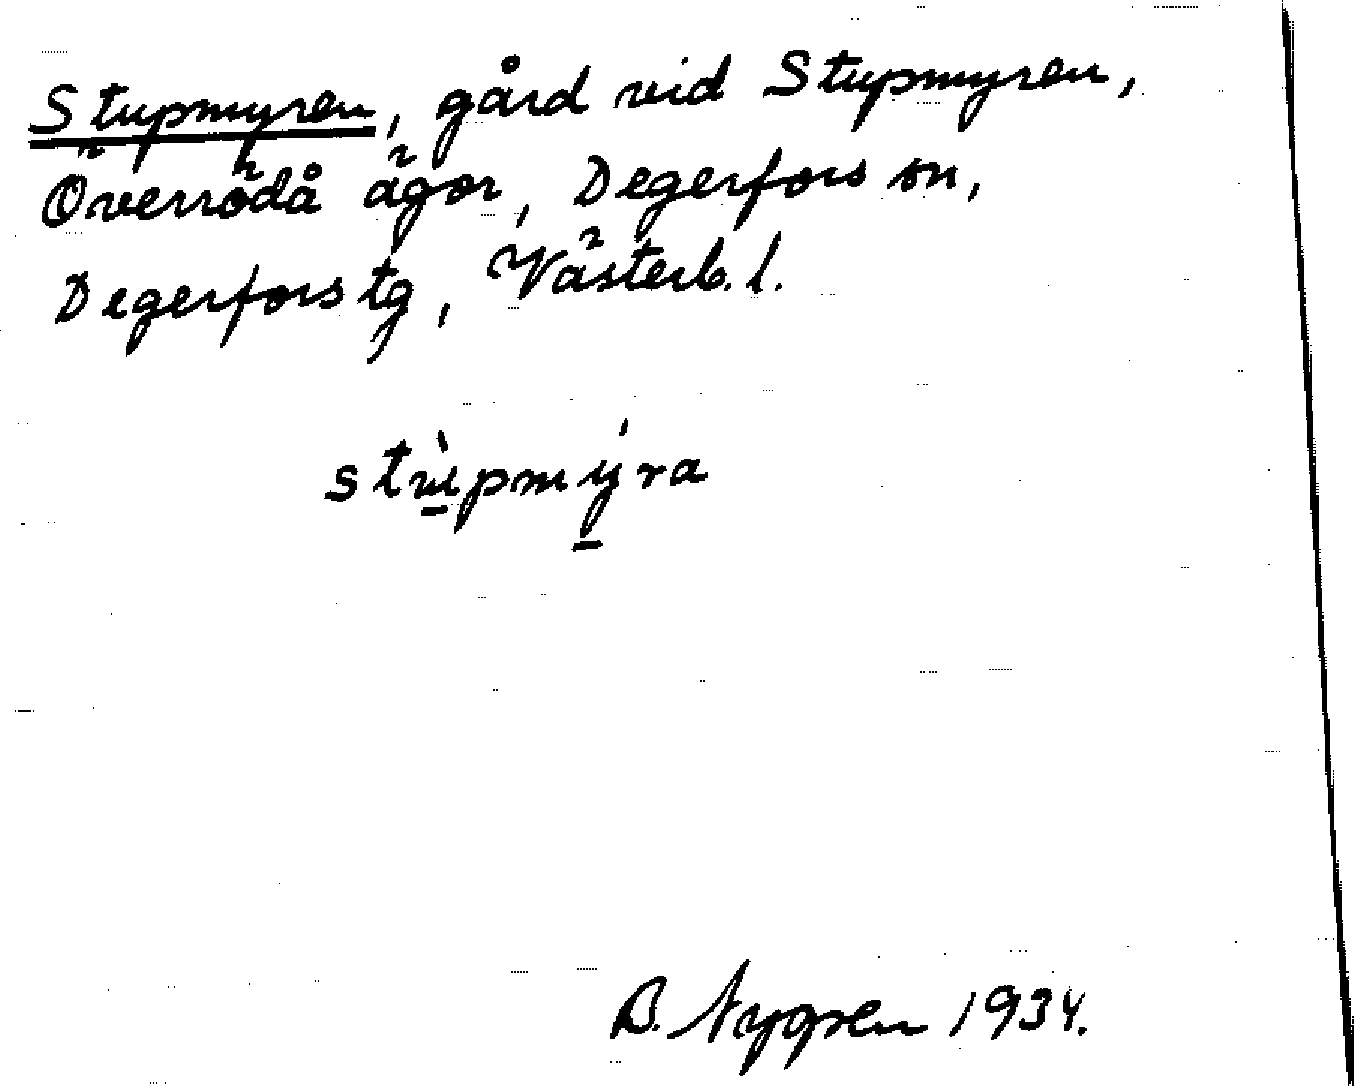 Stupmyren, gård vid Stupmyren,
Överrödå ägor, Degerfors sn,
Degerfors tg, Västerb. l.
stù̲pmý̲ra
B. Nygren 1934.